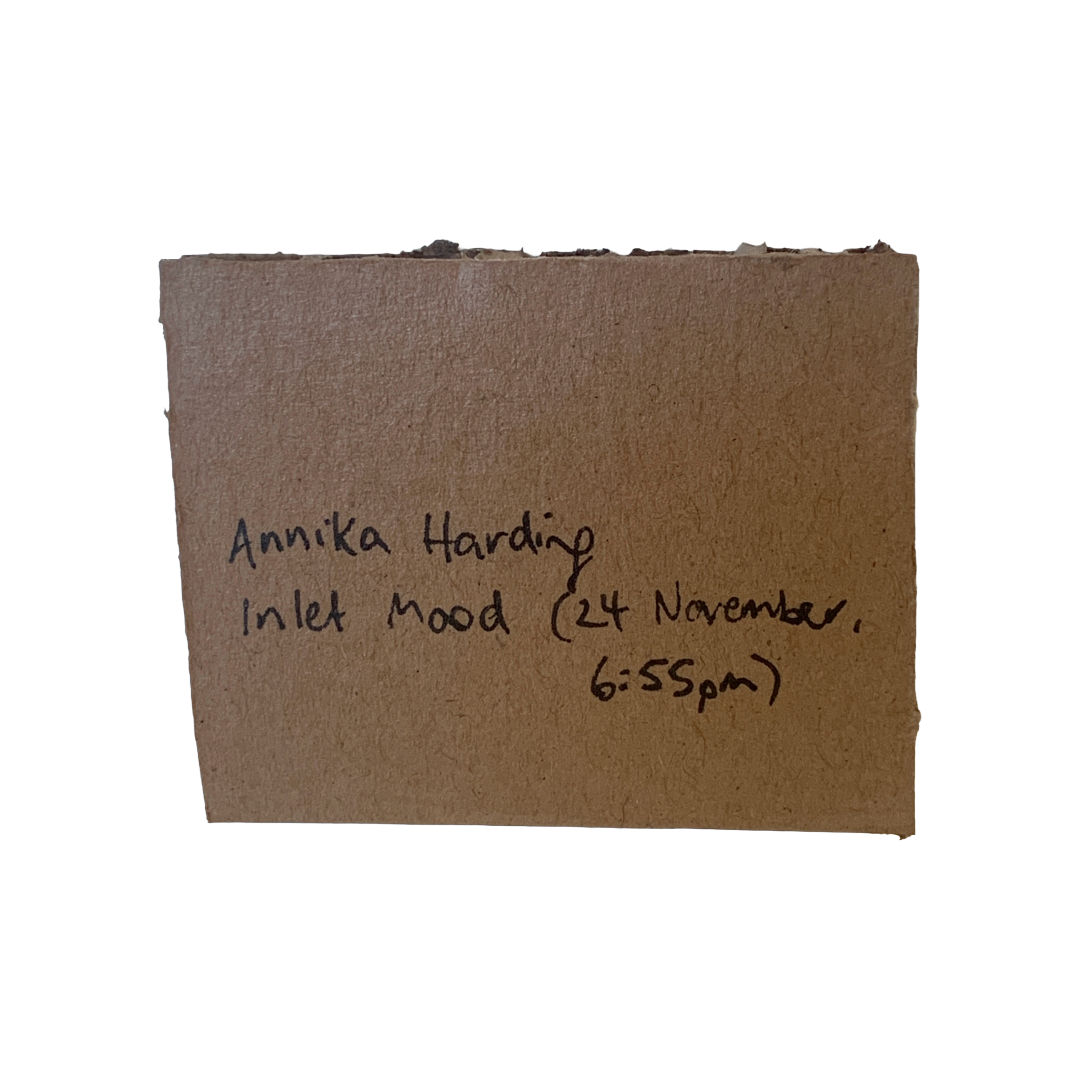 Annika Harding
Inlet Mood (24 November,
6:55pm)